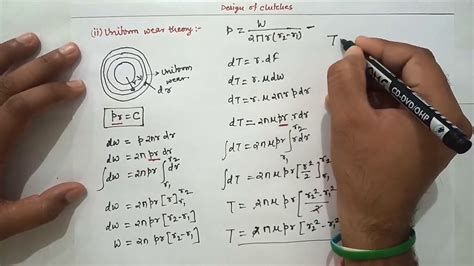 Design of clutches
(ii) Uniform wear theory:-
Uniform
wear.
dr
pr = C
dw = p 2π r dr
dw = 2π pr dr
∫dw = 2π pr ∫ dr r₁ r₂
dw = 2π pr [r] r₁ r₂
dw = 2π pr [r₂-r₁]
W = 2π pr [r₂-r₁]
P = W / 2π r (r₂-r₁) -
dT = r. dF
dT = r. μ dw
dT = r. μ 2π r p dr
dT = 2π μ pr. r dr
∫dT = 2π μ pr ∫ r dr r₁ r₂
∫dT = 2π μ pr [r²/2] r₁ r₂
T = 2π μ pr [r₂² - r₁² / 2]
T = 2π μ pr [r₂² - r₁²
T
CD-DVD/OHP